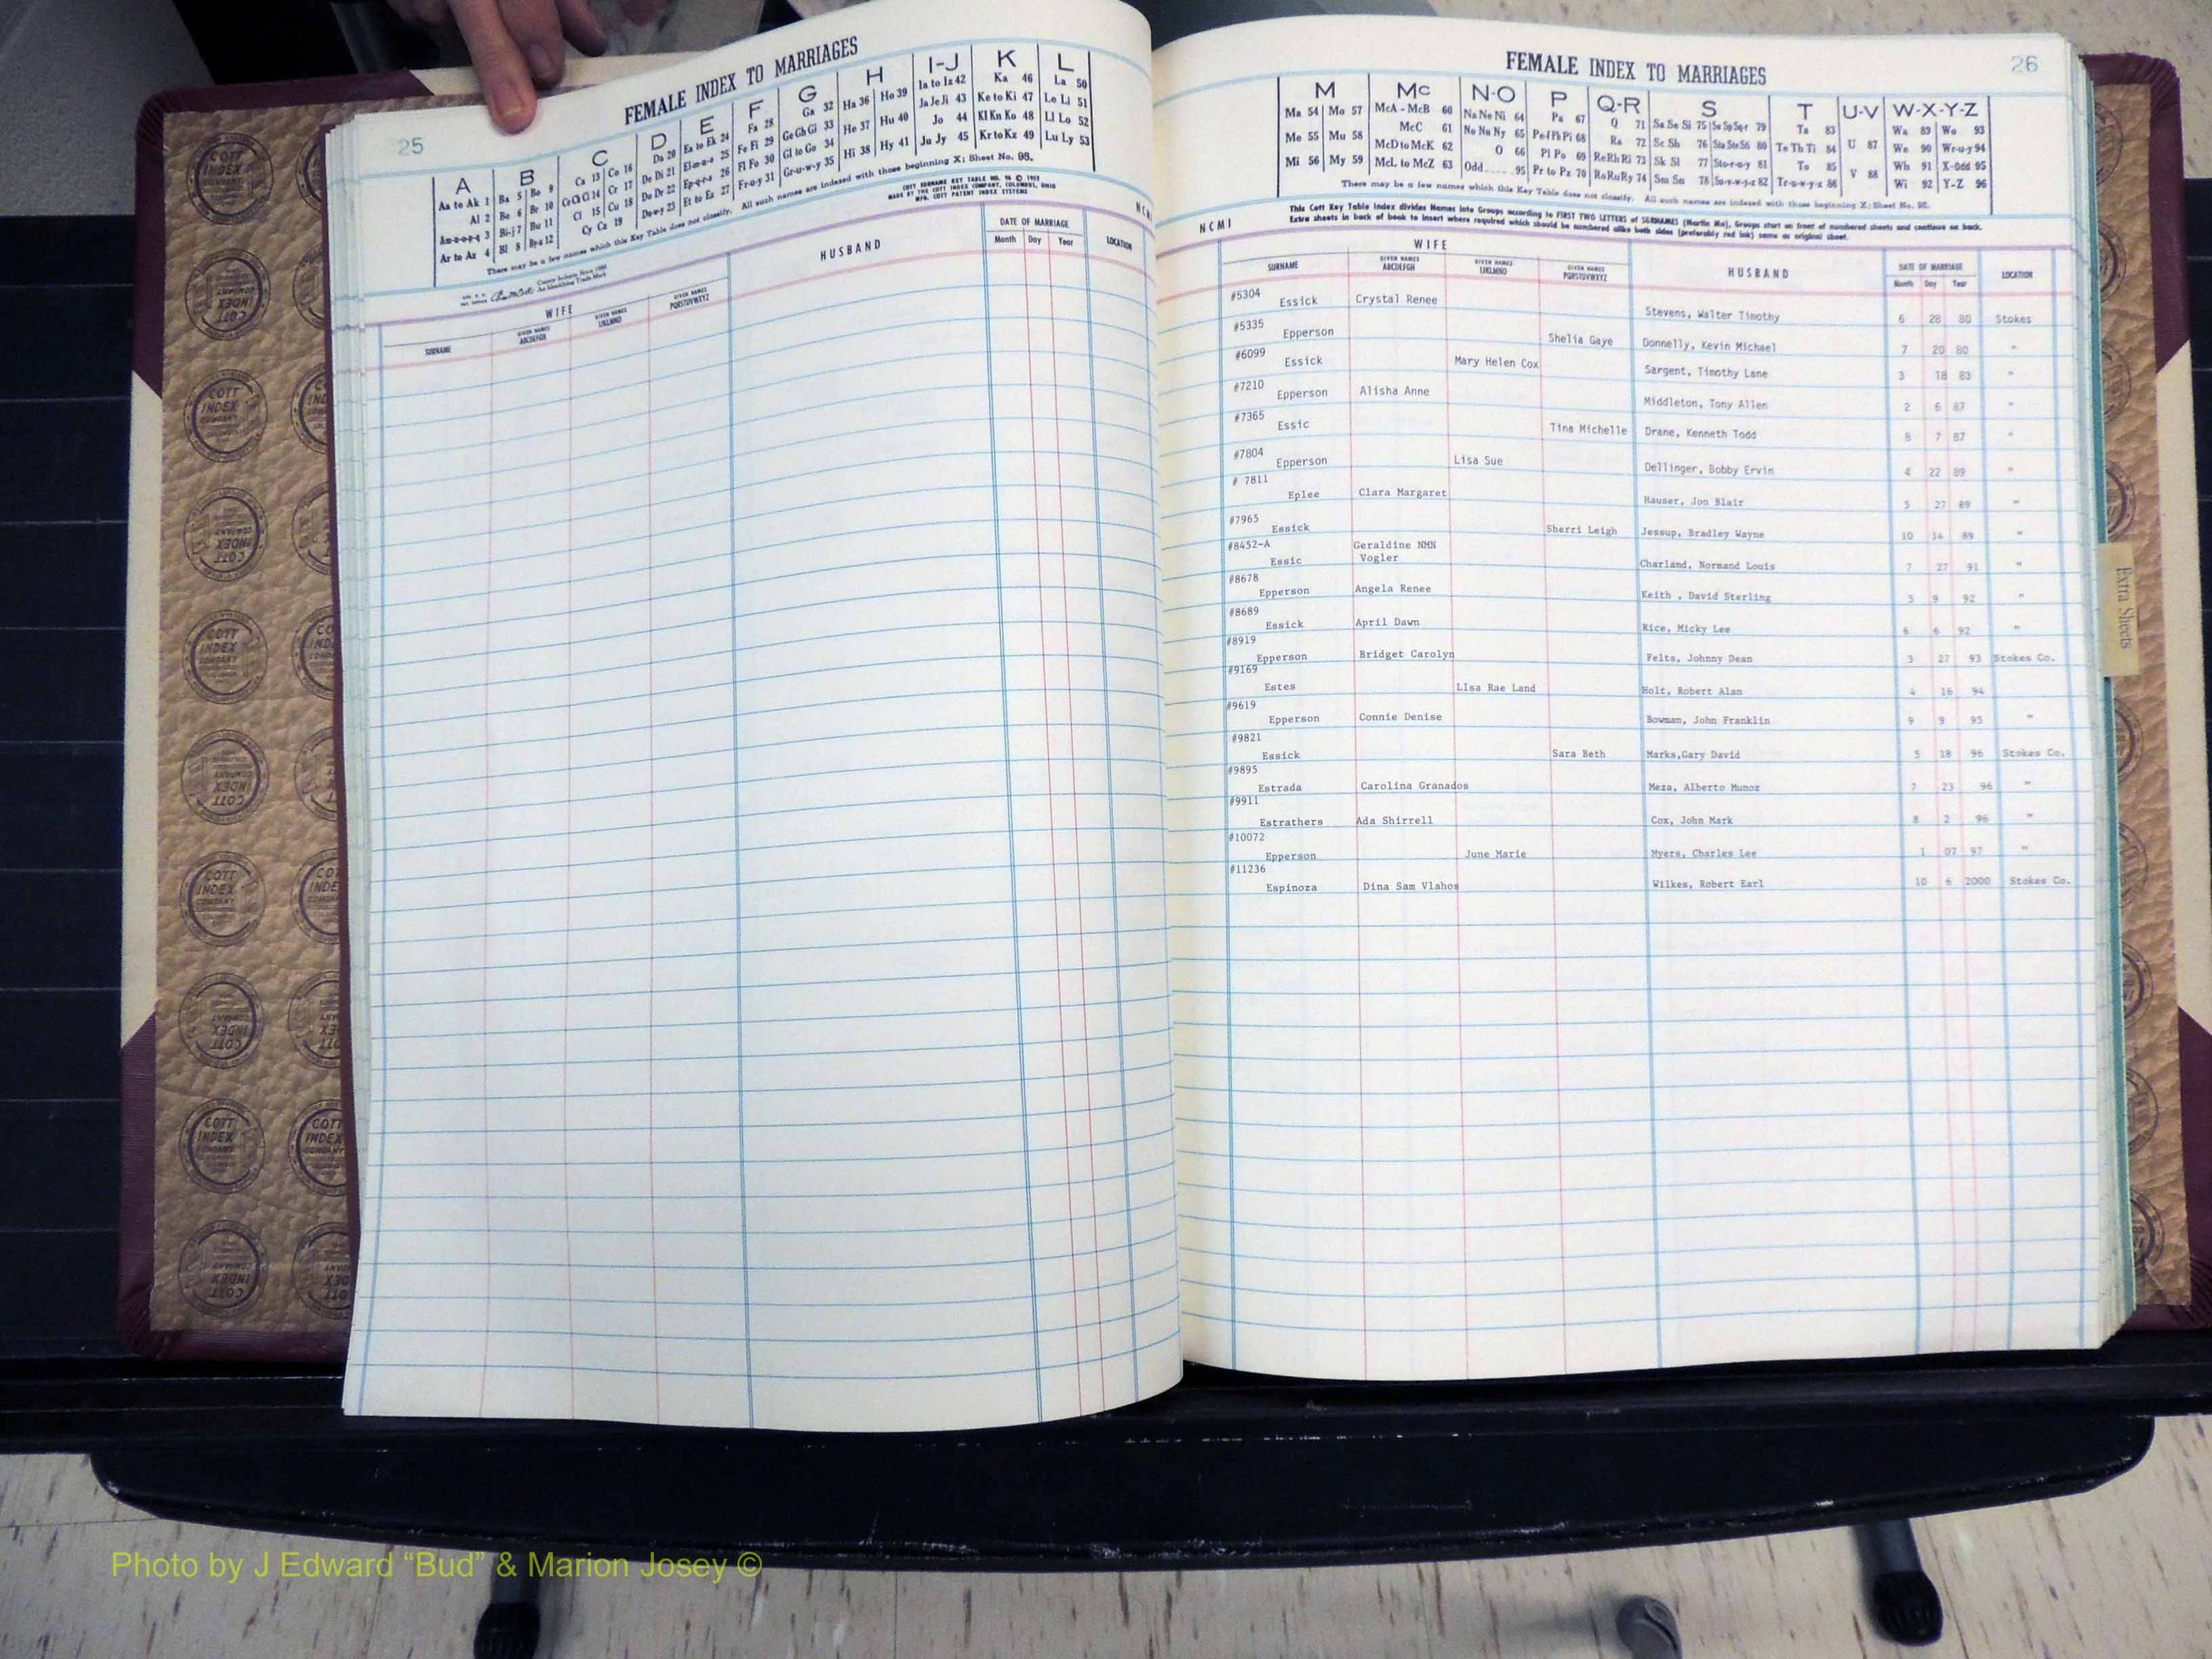 25
FEMALE INDEX TO MARRIAGES
A B C D E F G H I-J K L
Aa to Ak 1 Ba 5 Be 9 Ca 13 Co 16 Da 20 Ea to Ek 24 Fa 28 Ga 32 Ha 36 Ho 39 Ia to Iz 42 Ka 46 La 50
Al 2 Be 6 Br 10 Ce Ch Ci 14 Cr 17 De Di 21 El-m-n-o 25 Fe Fi 29 Ge Gh Gi 33 He 37 Hu 40 Ja Je Ji 43 Ke to Ki 47 Le Li 51
Am-n-o-p-q 3 Bi-j 7 Bu 11 Cl 15 Cu 18 Do Dr 22 Ep-q-r-s 26 Fl Fo 30 Gl to Go 34 Hi 38 Hy 41 Jo 44 Kl Kn Ko 48 Ll Lo 52
Ar to Az 4 Bl 8 By-z 12 Cy Cz 19 Du-w-y 23 Et to Ez 27 Fr-u-y 31 Gr-u-w-y 35 Ju Jy 45 Kr to Kz 49 Lu Ly 53
There may be a few names which this Key Table does not classify. All such names are indexed with those beginning X; Sheet No. 95.
COTT SURNAME KEY TABLE NO. 96 © 1957
MADE BY THE COTT INDEX COMPANY, COLUMBUS, OHIO
MFG. COTT PATENT INDEX SYSTEMS
WIFE HUSBAND DATE OF MARRIAGE LOCATION
SURNAME GIVEN NAMES ABCDEFGH GIVEN NAMES IJKLMNO GIVEN NAMES PQRSTUVWXYZ Month Day Year
26
FEMALE INDEX TO MARRIAGES
M Mc N-O P Q-R S T U-V W-X-Y-Z
Ma 54 Mo 57 McA - McB 60 Na Ne Ni 64 Pa 67 Q 71 Sa Se Si 75 So Sp Sq-r 79 Ta 83 Wa 89 Wo 93
Me 55 Mu 58 McC 61 No Nu Ny 65 Pe-f Ph Pi 68 Ra 72 Sc Sh 76 Sta Ste S6 80 Te Th Ti 84 U 87 We 90 Wr-u-y 94
Mi 56 My 59 McD to McK 62 O 66 Pl Po 69 Re Rh Ri 73 Sk Sl 77 Sto-r-u-y 81 To 85 V 88 Wh 91 X-Odd 95
McL to McZ 63 Odd 95 Pr to Pz 70 Ro Ru Ry 74 Sm Sn 78 Su-v-w-y-z 82 Tr-u-w-y-z 86 Wi 92 Y-Z 96
There may be a few names which this Key Table does not classify. All such names are indexed with those beginning X; Sheet No. 95.
NCMI
This Cott Key Table Index divides Names into Groups according to FIRST TWO LETTERS of SURNAMES (Martin Ma). Groups start on front of numbered sheets and continue on back.
Extra sheets in back of book to insert where required which should be numbered alike both sides (preferably red ink) same as original sheet.
WIFE HUSBAND DATE OF MARRIAGE LOCATION
SURNAME GIVEN NAMES ABCDEFGH GIVEN NAMES IJKLMNO GIVEN NAMES PQRSTUVWXYZ Month Day Year
#5304 Essick Crystal Renee Stevens, Walter Timothy 6 28 80 Stokes
#5335 Epperson Shelia Gaye Donnelly, Kevin Michael 7 20 80 "
#6099 Essick Mary Helen Cox Sargent, Timothy Lane 3 18 83 "
#7210 Epperson Alisha Anne Middleton, Tony Allen 2 6 87 "
#7365 Essic Tina Michelle Drane, Kenneth Todd 8 7 87 "
#7804 Epperson Lisa Sue Dellinger, Bobby Ervin 4 22 89 "
# 7811 Eplee Clara Margaret Hauser, Jon Blair 5 27 89 "
#7965 Essick Sherri Leigh Jessup, Bradley Wayne 10 14 89 "
#8452-A Essic Geraldine NMN Vogler Charland, Normand Louis 7 27 91 "
#8678 Epperson Angela Renee Keith , David Sterling 5 9 92 "
#8689 Essick April Dawn Rice, Micky Lee 6 6 92 "
#8919 Epperson Bridget Carolyn Felts, Johnny Dean 3 27 93 Stokes Co.
#9169 Estes LIsa Rae Land Holt, Robert Alan 4 16 94
#9619 Epperson Connie Denise Bowman, John Franklin 9 9 95 "
#9821 Essick Sara Beth Marks,Gary David 5 18 96 Stokes Co.
#9895 Estrada Carolina Granados Meza, Alberto Munoz 7 23 96 "
#9911 Estrathers Ada Shirrell Cox, John Mark 8 2 96 "
#10072 Epperson June Marie Myers, Charles Lee 1 07 97 "
#11236 Espinoza Dina Sam Vlahos Wilkes, Robert Earl 10 6 2000 Stokes Co.
Extra Sheets
COTT INDEX COMPANY
Photo by J Edward “Bud” & Marion Josey ©